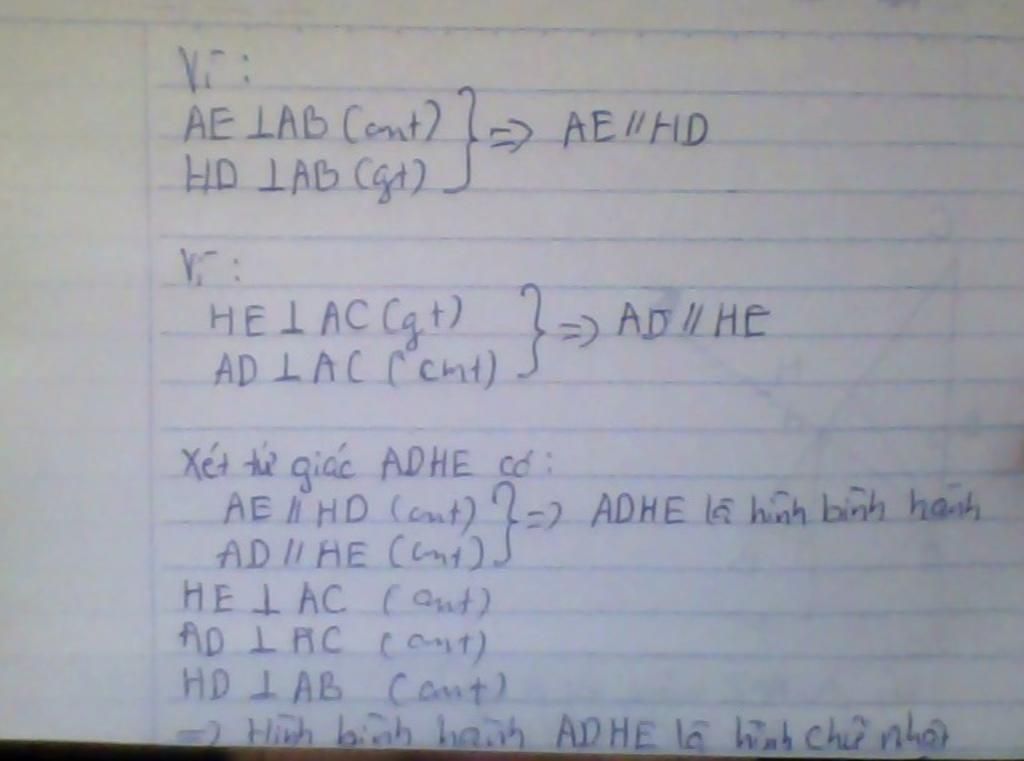 Vì :
AE ⊥ AB (cmt) } => AE // HD
HD ⊥ AB (gt)
Vì :
HE ⊥ AC (gt) } => AD // HE
AD ⊥ AC (cmt)
Xét tứ giác ADHE có :
AE // HD (cmt) } => ADHE là hình bình hành
AD // HE (cmt)
HE ⊥ AC (cmt)
AD ⊥ AC (cmt)
HD ⊥ AB (cmt)
=> Hình bình hành ADHE là hình chữ nhật